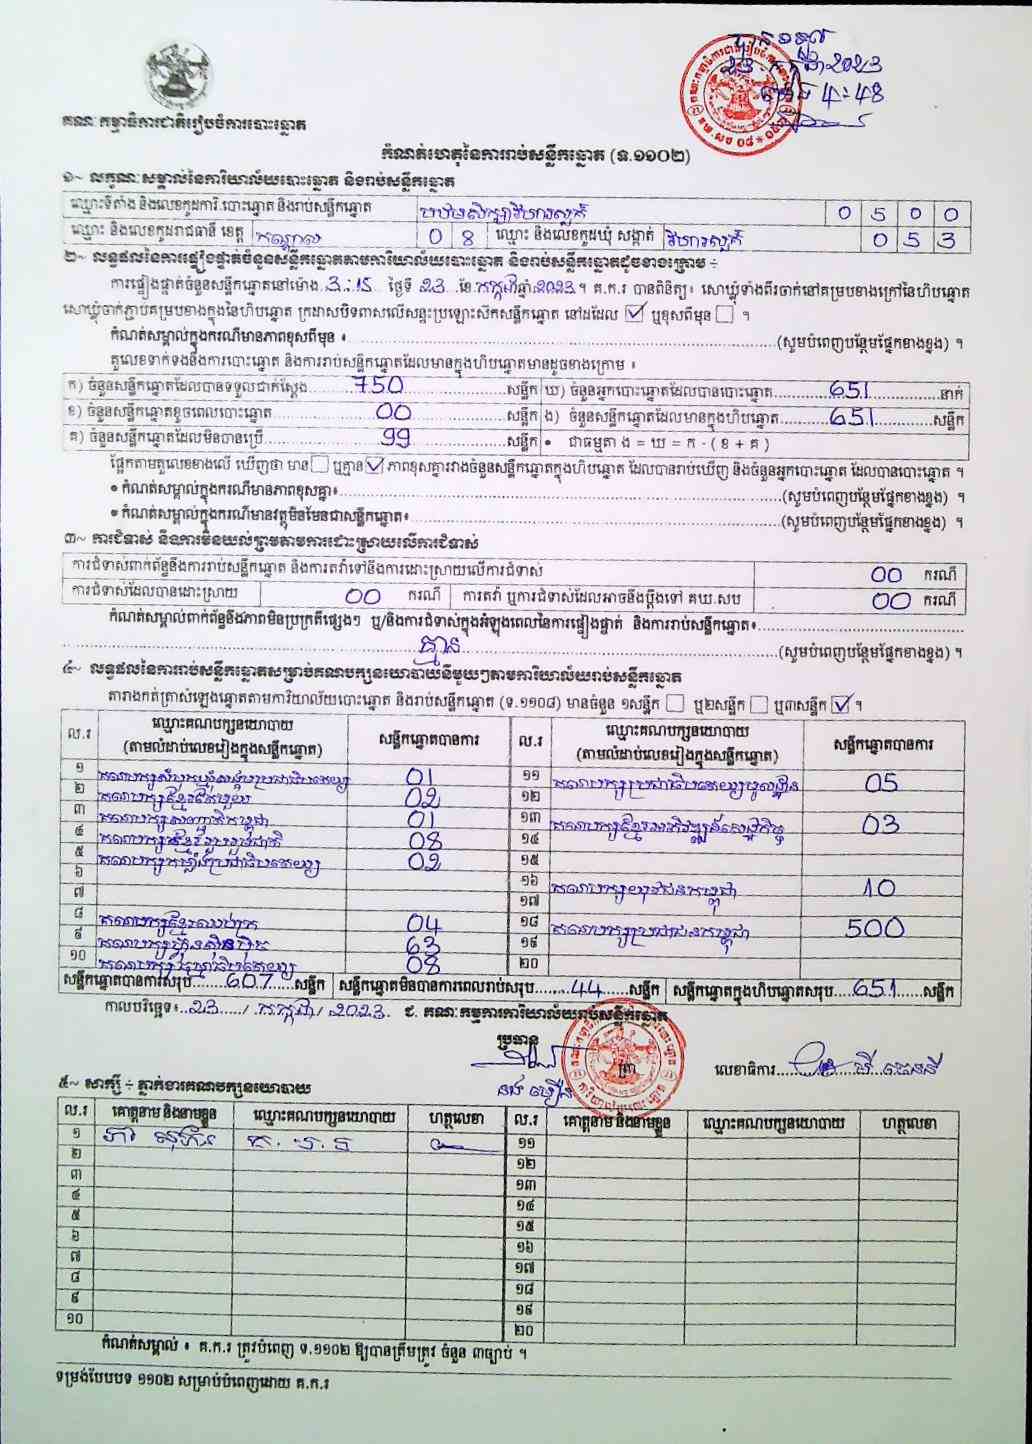 បានទទួល
23 កក្កដា 2023
ម៉ោង 4:48
គណៈកម្មាធិការជាតិរៀបចំការបោះឆ្នោត
កំណត់ហេតុនៃការរាប់សន្លឹកឆ្នោត (ទ.១១០២)
១~ លក្ខណៈសម្គាល់នៃការិយាល័យបោះឆ្នោត និងរាប់សន្លឹកឆ្នោត
ឈ្មោះទីតាំង និងលេខកូដការិ.បោះឆ្នោត និងរាប់សន្លឹកឆ្នោត បឋមសិក្សាវិហារសួគ៌ 0 5 0 0
ឈ្មោះ និងលេខកូដរាជធានី ខេត្ត កណ្តាល 0 8 ឈ្មោះ និងលេខកូដឃុំ សង្កាត់ វិហារសួគ៌ 0 5 3
២~ លទ្ធផលនៃការផ្ទៀងផ្ទាត់ចំនួនសន្លឹកឆ្នោតតាមការិយាល័យបោះឆ្នោត និងរាប់សន្លឹកឆ្នោតដូចខាងក្រោម ÷
ការផ្ទៀងផ្ទាត់ចំនួនសន្លឹកឆ្នោតនៅម៉ោង 3:15 ថ្ងៃទី 23 ខែ កក្កដា ឆ្នាំ 2023 ។ គ.ក.រ បានពិនិត្យ៖ សោឃ្លុំទាំងពីរចាក់នៅគម្របខាងក្រៅនៃហិបឆ្នោត
សោឃ្លុំចាក់ភ្ជាប់គម្របខាងក្នុងនៃហិបឆ្នោត ក្រដាសបិទពាសលើសន្ទះប្រឡោះសឹកសន្លឹកឆ្នោត នៅដដែល ☑ ឬខុសពីមុន ☐ ។
កំណត់សម្គាល់ក្នុងករណីមានភាពខុសពីមុន ៖ (សូមបំពេញបន្ថែមផ្នែកខាងខ្នង) ។
តួលេខទាក់ទងនឹងការបោះឆ្នោត និងការរាប់សន្លឹកឆ្នោតដែលមានក្នុងហិបឆ្នោតមានដូចខាងក្រោម ៖
ក) ចំនួនសន្លឹកឆ្នោតដែលបានទទួលជាក់ស្តែង 750 សន្លឹក ឃ) ចំនួនអ្នកបោះឆ្នោតដែលបានបោះឆ្នោត 651 នាក់
ខ) ចំនួនសន្លឹកឆ្នោតខូចពេលបោះឆ្នោត 00 សន្លឹក ង) ចំនួនសន្លឹកឆ្នោតដែលមានក្នុងហិបឆ្នោត 651 សន្លឹក
គ) ចំនួនសន្លឹកឆ្នោតដែលមិនបានប្រើ 99 សន្លឹក • ជាធម្មតា ង = ឃ = ក - ( ខ + គ )
ផ្អែកតាមតួលេខខាងលើ ឃើញថា មាន ☐ ឬគ្មាន ☑ ភាពខុសគ្នារវាងចំនួនសន្លឹកឆ្នោតក្នុងហិបឆ្នោត ដែលបានរាប់ឃើញ និងចំនួនអ្នកបោះឆ្នោត ដែលបានបោះឆ្នោត ។
• កំណត់សម្គាល់ក្នុងករណីមានភាពខុសគ្នា៖ (សូមបំពេញបន្ថែមផ្នែកខាងខ្នង) ។
• កំណត់សម្គាល់ក្នុងករណីមានវត្ថុមិនមែនជាសន្លឹកឆ្នោត៖ (សូមបំពេញបន្ថែមផ្នែកខាងខ្នង) ។
៣~ ការជំទាស់ និងការមិនយល់ព្រមតាមការដោះស្រាយលើការជំទាស់
ការជំទាស់ពាក់ព័ន្ធនឹងការរាប់សន្លឹកឆ្នោត និងការតវ៉ាទៅនឹងការដោះស្រាយលើការជំទាស់ 00 ករណី
ការជំទាស់ដែលបានដោះស្រាយ 00 ករណី ការតវ៉ា ឬការជំទាស់ដែលអាចនឹងប្តឹងទៅ គឃ.សប 00 ករណី
កំណត់សម្គាល់ពាក់ព័ន្ធនឹងភាពមិនប្រក្រតីផ្សេងៗ ឬ/និងការជំទាស់ក្នុងអំឡុងពេលនៃការផ្ទៀងផ្ទាត់ និងការរាប់សន្លឹកឆ្នោត៖
គ្មាន (សូមបំពេញបន្ថែមផ្នែកខាងខ្នង) ។
៤~ លទ្ធផលនៃការរាប់សន្លឹកឆ្នោតសម្រាប់គណបក្សនយោបាយនីមួយៗតាមការិយាល័យរាប់សន្លឹកឆ្នោត
តារាងកត់ត្រាសំឡេងឆ្នោតតាមការិយាល័យបោះឆ្នោត និងរាប់សន្លឹកឆ្នោត (ទ.១១០៨) មានចំនួន ១សន្លឹក ☐ ឬ២សន្លឹក ☐ ឬ៣សន្លឹក ☑ ។
ល.រ ឈ្មោះគណបក្សនយោបាយ (តាមលំដាប់លេខរៀងក្នុងសន្លឹកឆ្នោត) សន្លឹកឆ្នោតបានការ ល.រ ឈ្មោះគណបក្សនយោបាយ (តាមលំដាប់លេខរៀងក្នុងសន្លឹកឆ្នោត) សន្លឹកឆ្នោតបានការ
១ គណបក្សសំបុកឃ្មុំសង្គមប្រជាធិបតេយ្យ 01 ១១ គណបក្សប្រជាធិបតេយ្យមូលដ្ឋាន 05
២ គណបក្សខ្មែរតែមួយ 02 ១២
៣ គណបក្សសញ្ជាតិកម្ពុជា 01 ១៣ គណបក្សខ្មែរអភិវឌ្ឍន៍សេដ្ឋកិច្ច 03
៤ គណបក្សខ្មែររួបរួមជាតិ 08 ១៤
៥ គណបក្សកម្លាំងប្រជាធិបតេយ្យ 02 ១៥
៦ ១៦ គណបក្សយុវជនកម្ពុជា 10
៧ ១៧
៨ គណបក្សខ្មែរឈប់ក្រ 04 ១៨ គណបក្សប្រជាជនកម្ពុជា 500
៩ គណបក្សហ្វ៊ុនស៊ិនប៉ិច 63 ១៩
១០ គណបក្សធម្មាធិបតេយ្យ 08 ២០
សន្លឹកឆ្នោតបានការសរុប 607 សន្លឹក សន្លឹកឆ្នោតមិនបានការពេលរាប់សរុប 44 សន្លឹក សន្លឹកឆ្នោតក្នុងហិបឆ្នោតសរុប 651 សន្លឹក
កាលបរិច្ឆេទ៖ 23 / កក្កដា / 2023 ជ. គណៈកម្មការការិយាល័យរាប់សន្លឹកឆ្នោត
ប្រធាន ត្រា លេខាធិការ
៥~ សាក្សី ÷ ភ្នាក់ងារគណបក្សនយោបាយ
ល.រ គោត្តនាម និងនាមខ្លួន ឈ្មោះគណបក្សនយោបាយ ហត្ថលេខា ល.រ គោត្តនាម និងនាមខ្លួន ឈ្មោះគណបក្សនយោបាយ ហត្ថលេខា
១ គ.ប.ប ១១
២ ១២
៣ ១៣
៤ ១៤
៥ ១៥
៦ ១៦
៧ ១៧
៨ ១៨
៩ ១៩
១០ ២០
កំណត់សម្គាល់ ៖ គ.ក.រ ត្រូវបំពេញ ទ.១១០២ ឱ្យបានត្រឹមត្រូវ ចំនួន ៣ច្បាប់ ។
ទម្រង់បែបបទ ១១០២ សម្រាប់បំពេញដោយ គ.ក.រ